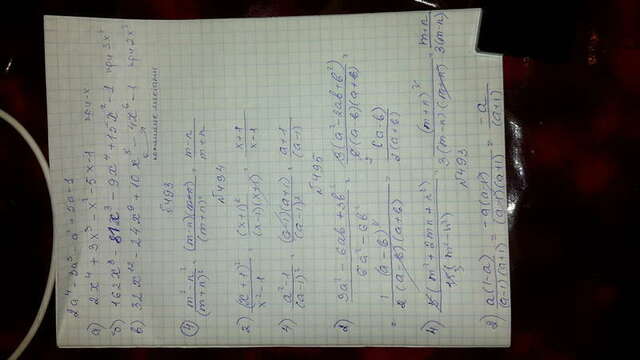 2a⁴ - 3a³ - a² - 5a - 1
а) 2x⁴ + 3x³ - x² - 5x - 1 при -x
б) 162x⁸ - 81x³ - 9x⁴ + 15x² - 1 при 3x²
в) 32x¹² - 24x⁹ + 10x³ - 4x⁶ - 1 при 2x³
№493
1) m² - n² / (m+n)² = (m-n)(m+n) / (m+n)² = m-n / m+n
№494
2) (x+1)² / x² - 1 = (x+1)² / (x-1)(x+1) = x+1 / x-1
4) a² - 1 / (a-1)² = (a-1)(a+1) / (a-1)² = a+1 / (a-1)
№495
2) 3a² - 6ab + 3b² / 6a² - 6b² = 3(a² - 2ab + b²) / 6(a-b)(a+b) =
= 1 (a-b)² / 2(a-b)(a+b) = (a-b) / 2(a+b)
4) 5(m² + 2mn + n²) / 15(m² - n²) = (m+n)² / 3(m-n)(m+n) = m+n / 3(m-n)
№493
2) a(1-a) / (a-1)(a+1) = -a(a-1) / (a-1)(a+1) = -a / (a+1)